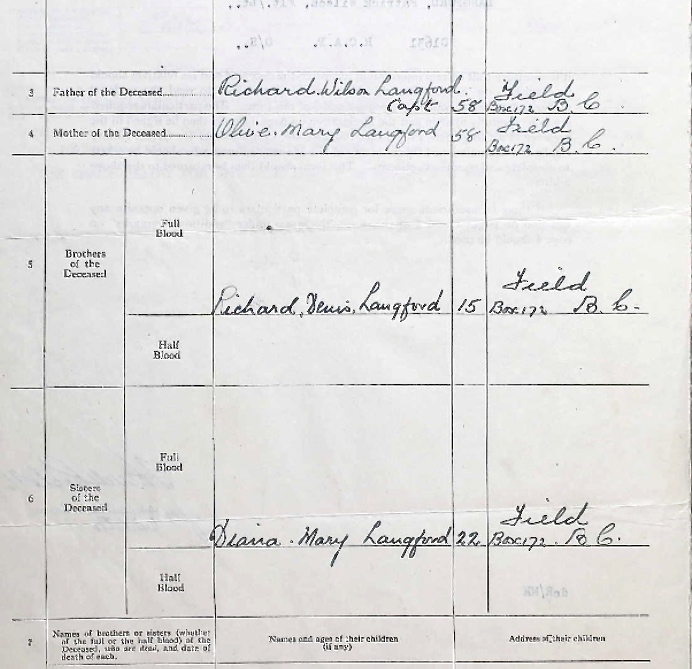 3 Father of the Deceased........ Richard. Wilson Langford. Field
Capt 58 Box 172 B. C.
4 Mother of the Deceased........ Olive. Mary Langford 58 Field
Box 172 B. C.
Full
Blood
5 Brothers
of the
Deceased
Field
Richard, Denis, Langford 15 Box 172 B. C.
Half
Blood
Full
Blood
6 Sisters
of the
Deceased
Field
Diana. Mary Langford 22 Box 172. B C.
Half
Blood
7 Names of brothers or sisters (whether
of the full or the half blood) of the
Deceased, who are dead, and date of
death of each.
Names and ages of their children
(if any)
Address of their children